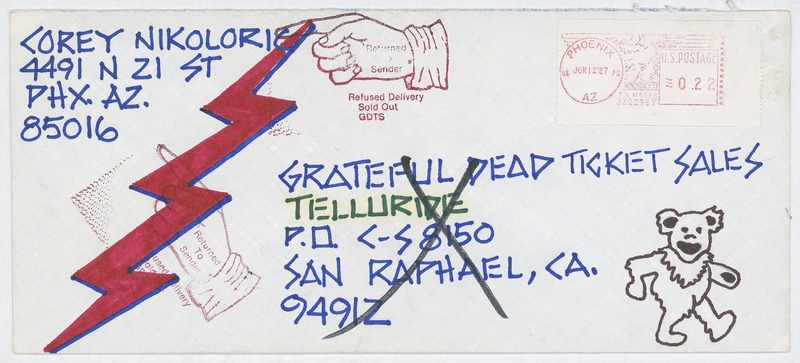 COREY NIKOLORIE
4491 N 21 ST
PHX. AZ.
85016
Returned
To
Sender
Refused Delivery
Sold Out
GDTS
PHOENIX
JUN 12 '87
AZ
U.S. POSTAGE
0.22
GRATEFUL DEAD TICKET SALES
TELLURIDE
P.O. C-S 8150
SAN RAPHAEL, CA.
94912
Returned
TO
Sender
Delivery